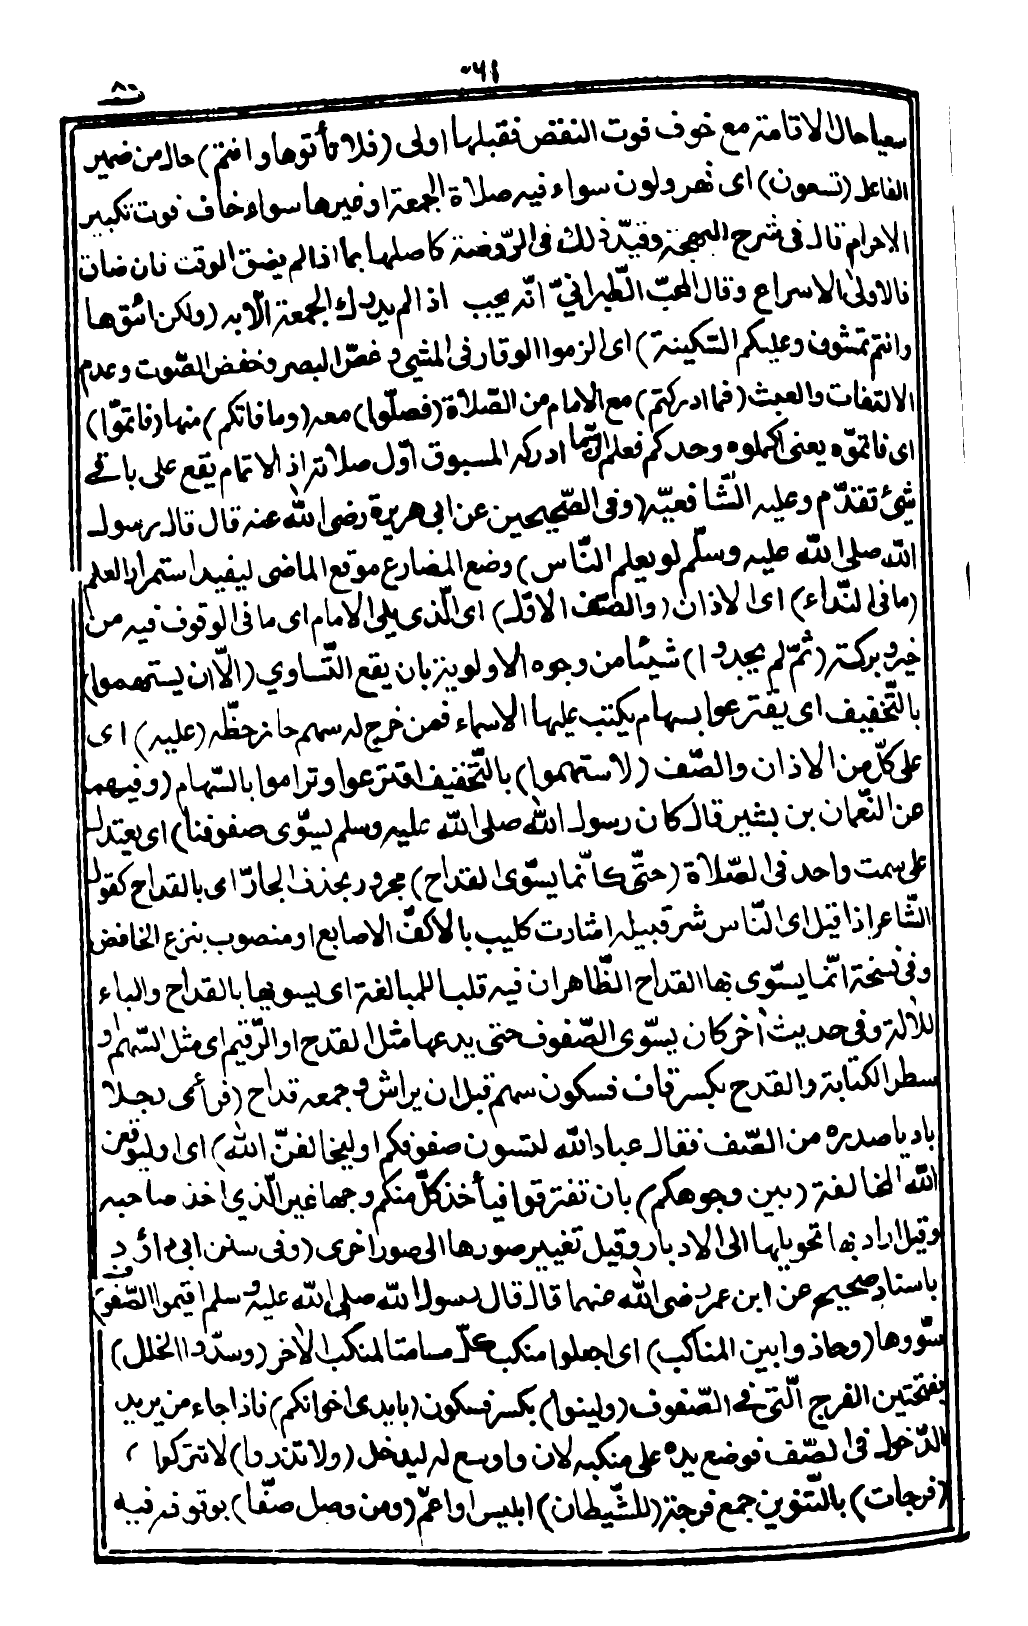 ٠٦١
سعيا حال الاقامة مع خوف فوت النقض فقبلها اولى (فلا تأتوها وانتم) حال من ضمير
الفاعل (تسعون) اى تهرولون سواء فيه صلاة الجمعة او غيرها سواء خاف فوت تكبير
الاحرام قال فى شرح البهجة وقيّد ذلك فى الرّوضة كاصلها بما اذا لم يضق الوقت فان ضاق
فالاولى الاسراع وقال المحبّ الطّبرانيّ انّه يجب اذا لم يدرك الجمعة الّا به (ولكن ائتوها
وانتم تمشون وعليكم السّكينة) اى الزموا الوقار فى المشي وغضّ البصر وخفض الصّوت وعدم
الالتفات والعبث (فما ادركتم) مع الامام من الصّلاة (فصلّوا) معه (وما فاتكم) منها (فاتمّوا)
اى فاتمّوه يعنى اكملوه وحدكم فعلم انّ ما ادركه المسبوق اوّل صلاته اذ الاتمام يقع على باقى
شئ تقدّم وعليه الشّافعيّة (وفى الصّحيحين عن ابى هريرة رضى الله عنه قال قال رسول
الله صلى الله عليه وسلّم لو يعلم النّاس) وضع المضارع موقع الماضى ليفيد استمرار العلم
(ما فى النّداء) اى الاذان (والصّف الاوّل) اى الّذى يلى الامام اى ما فى الوقوف فيه من
خير وبركة (ثمّ لم يجدوا) شيئا من وجوه الاولوية بان يقع التّساوي (الّا ان يستهموا)
بالتّخفيف اى يقترعوا بسهام يكتب عليها الاسماء فمن خرج له سهم حاز حظّه (عليه) اى
على كلّ من الاذان والصّف (لاستهموا) بالتّخفيف اقترعوا وتراموا بالسّهام (وفيهما
عن النّعمان بن بشير قال كان رسول الله صلى الله عليه وسلم يسوّى صفوفنا) اى يعتدل
على سمت واحد فى الصّلاة (حتّى كانّما يسوّى القداح) مجرور بحذف الجارّ اى بالقداح كقول
الشّاعر اذا قيل اى النّاس شر قبيلة اشارت كليب بالاكفّ الاصابع او منصوب بنزع الخافض
وفى نسخة انّما يسوّى بها القداح الظّاهر ان فيه قلبا للمبالغة اى يسويها بالقداح والباء
للالة وفى حديث أخر كان يسوّى الصّفوف حتى يدعها مثل القدح او الرّقيم اى مثل السّهم او
سطر الكتابة والقدح بكسر قاف فسكون سهم قبل ان يراش وجمعه قداح (فرأى رجلا
باديا صدره من الصّف فقال عباد الله لتسون صفوفكم او ليخالفنّ الله) اى او ليوقعن
الله المخالفة (بين وجوهكم) بان تفترقوا فيأخذ كلّ منكم وجها غير الّذي اخذ صاحبه
وقيل اراد بها تحويلها الى الادبار وقيل تغيير صورها الى صور اخرى (وفى سنن ابى داؤد
باسناد صحيح عن ابن عمر رضى الله عنهما قال قال رسول الله صلى الله عليه وسلم اقيموا الصّفوف)
سوّوها (وحاذوا بين المناكب) اى اجعلوا منكب كلّ مسامتا لمنكب الآخر (وسدّوا الخلل)
بفتحتين الفرج الّتى فى الصّفوف (ولينوا) بكسر فسكون (بايدى اخوانكم) فاذا جاء من يريد
الدّخول فى الصّف فوضع يده على منكبه لان واوسع له ليدخل (ولا تذروا) لا تتركوا
(فرجات) بالتّنوين جمع فرجة (للشّيطان) ابليس او اعمّ (ومن وصل صفّا) بوقوفه فيه